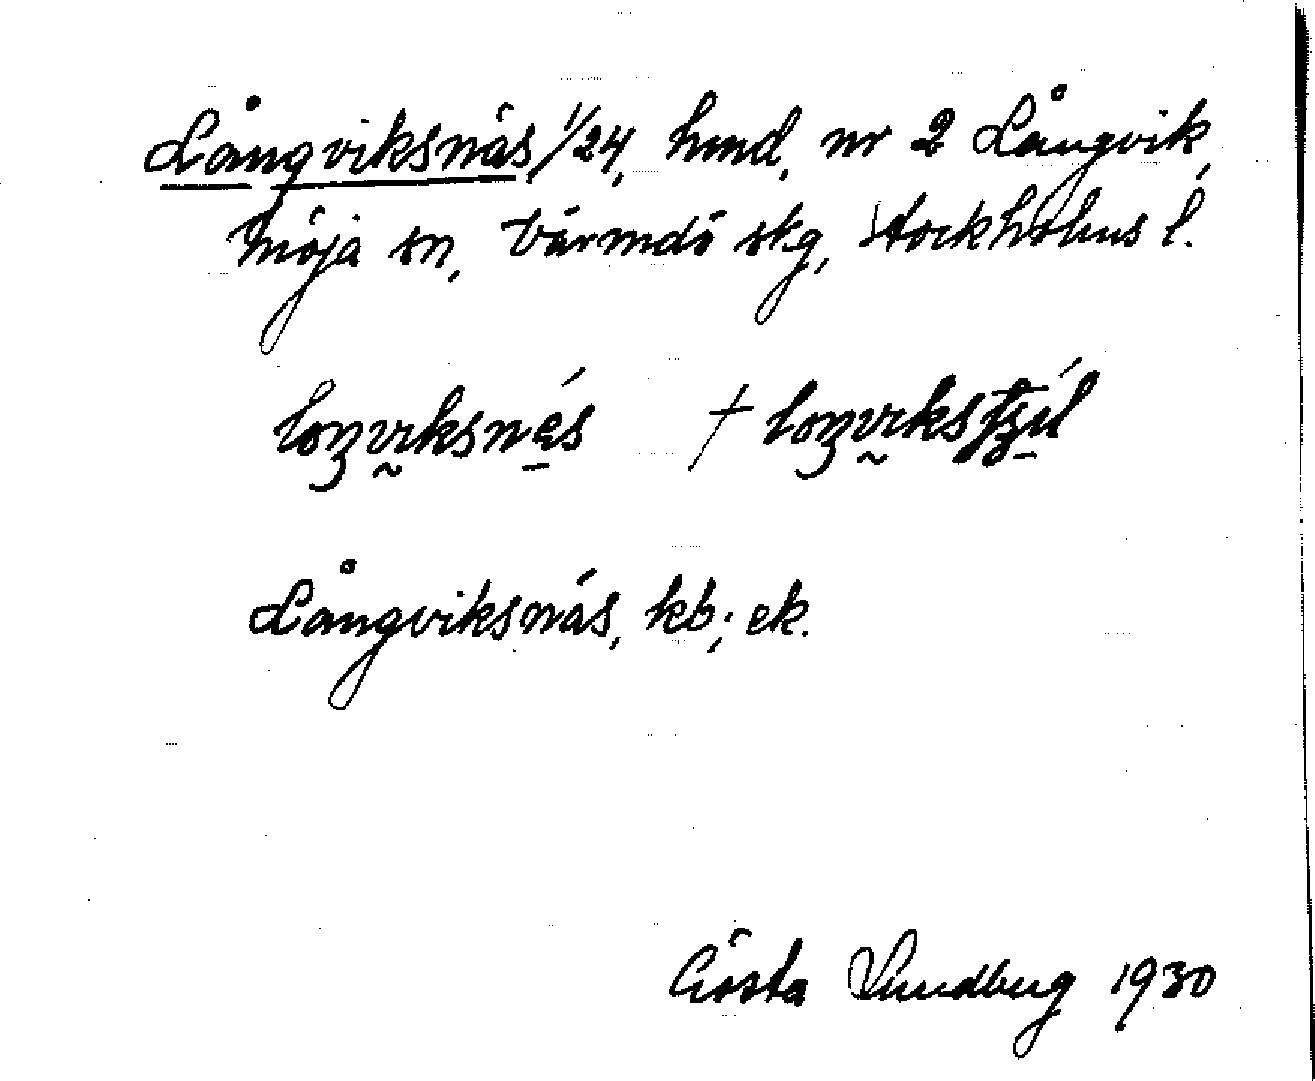 Långviksnäs 1/24, hmd, nr 2 Långvik,
Möja sn, Värmdö skg, Stockholms l.
Långviksnäs, kb; ek.
Gösta Sundberg 1930